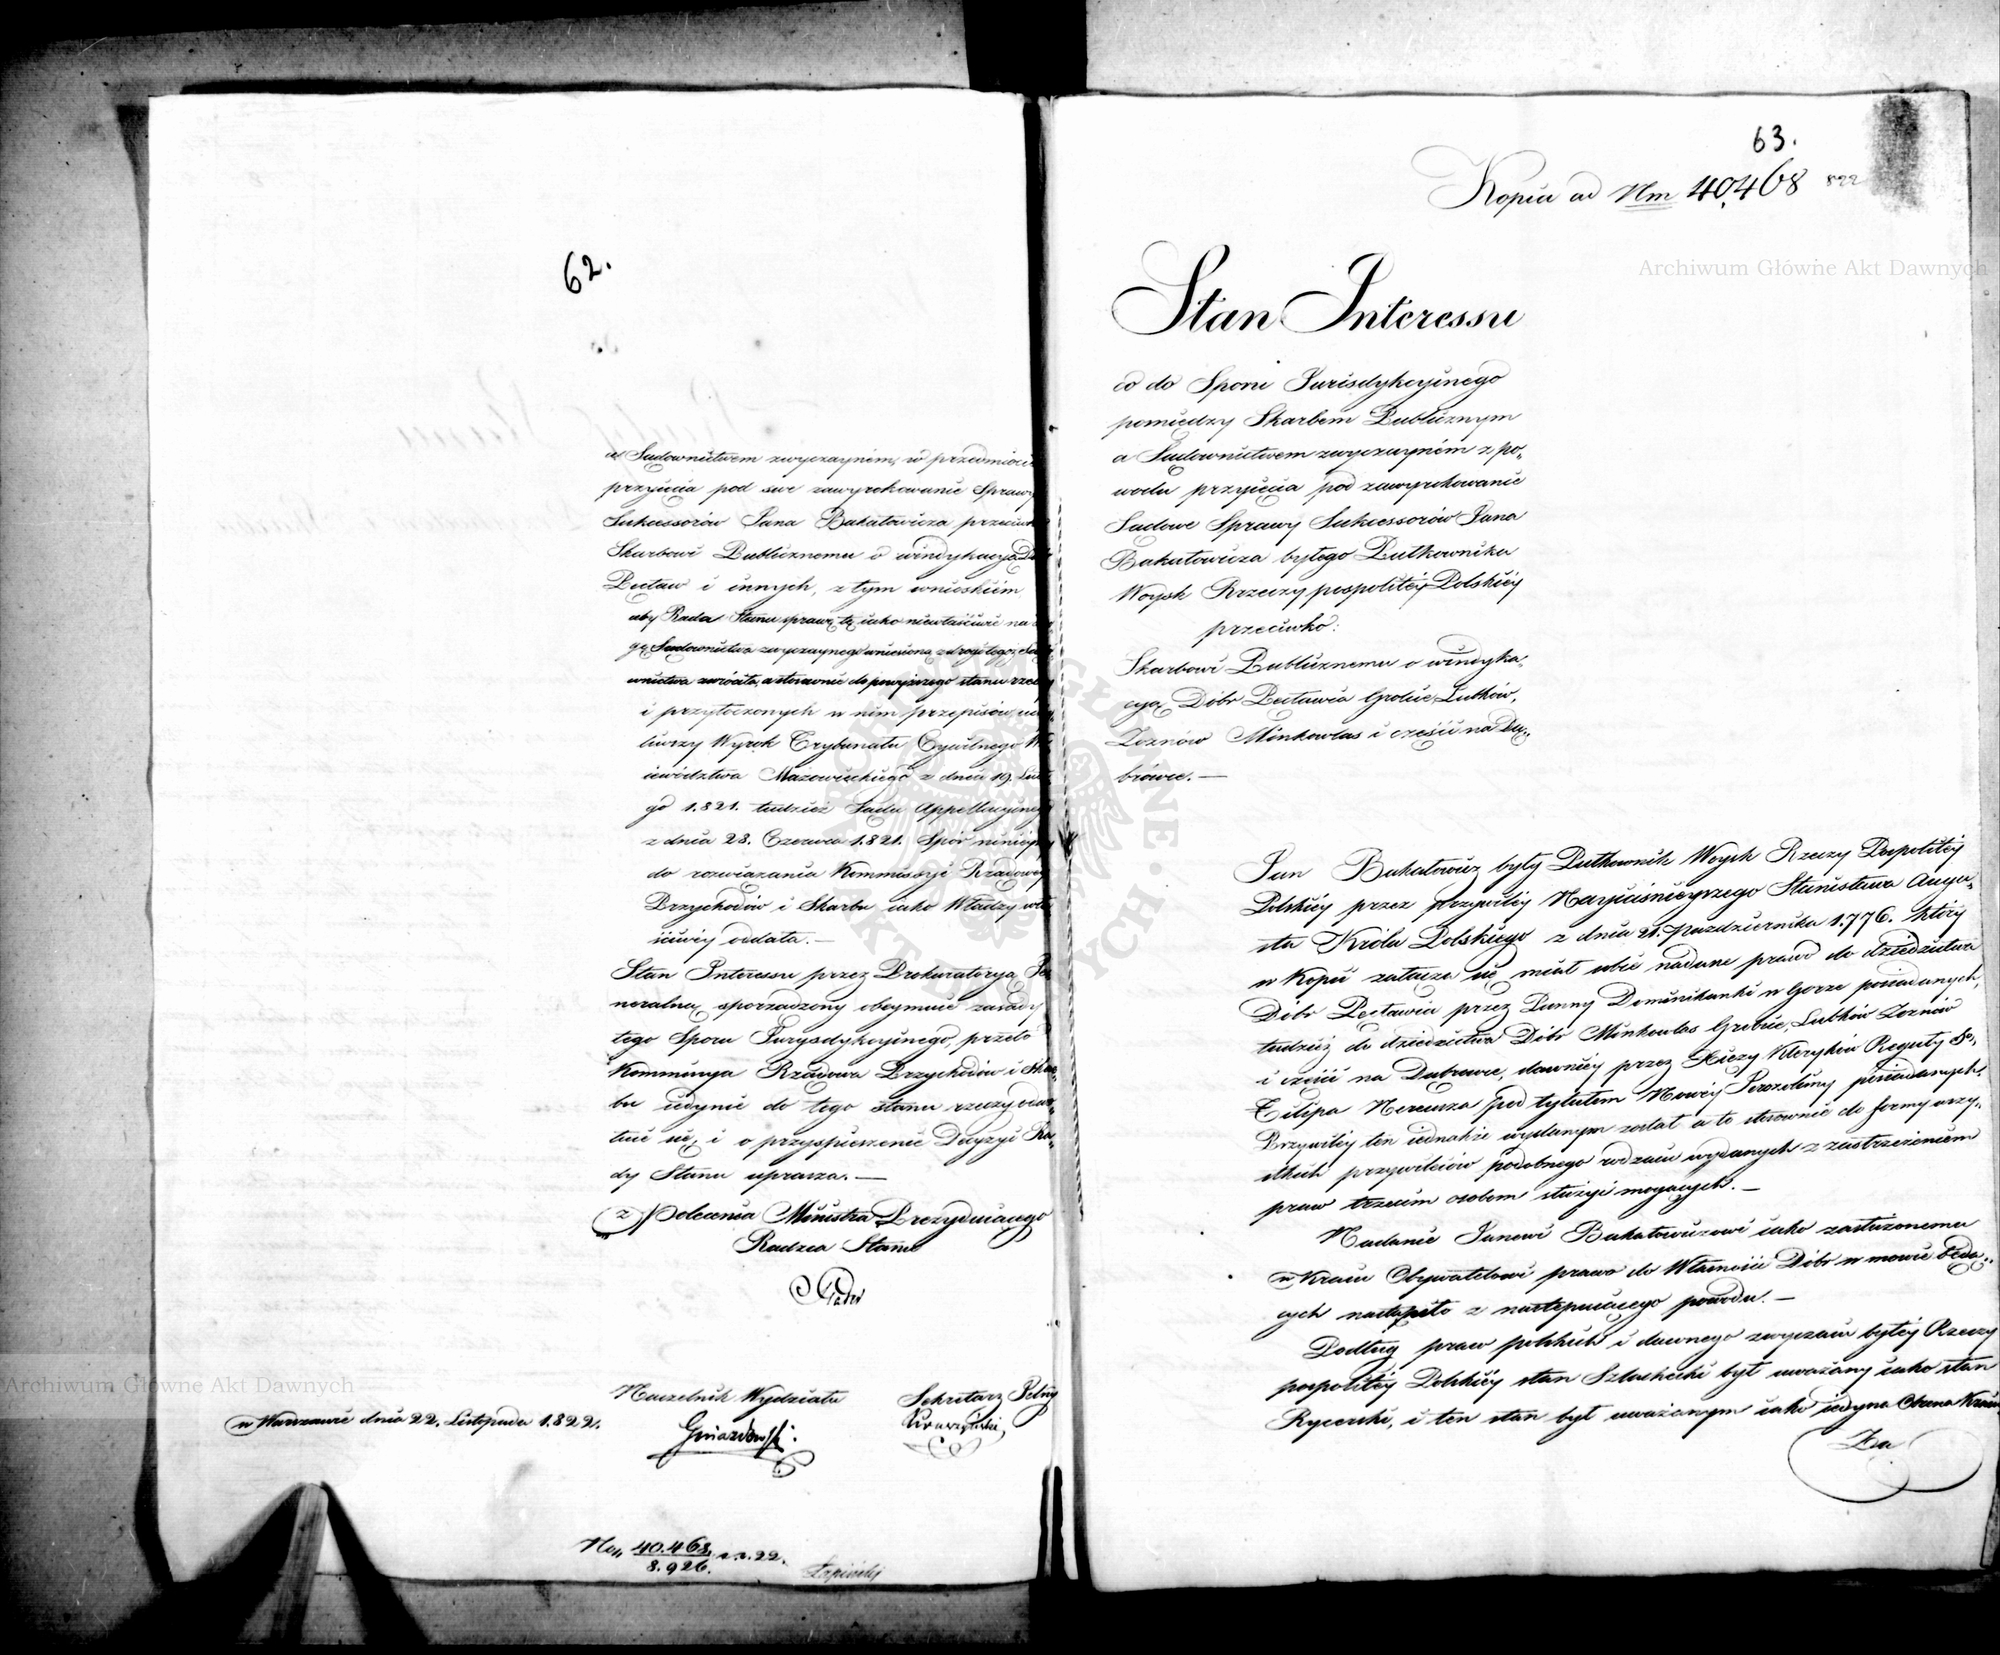 62.
a Sądownictwem zwyczaynem, w przedmiocie
przyięcia pod swe zawyrokowanie Sprawy
Sukcessorów Jana Bukatowicza przeciwko
Skarbowi Publicznemu o windykacyą Dóbr
Pęcław i innych, z tym wnioskiem
aby Rada Stanu sprawę tę iako niewłaściwie na
gę Sądownictwa zwyczaynego wniesioną z drogi tego Sądo
wnictwa zwróciła, a stosownie do powyższego stanu rzeczy
i przytoczonych w nim przepisów, uchy
liwszy Wyrok Trybunału Cywilnego Wo
iewództwa Mazowieckiego z dnia 19. Lute
go 1.821. tudzież Sądu Appellacyinego
z dnia 28. Czerwca 1.821. Spór ninieyszy
do rozwiązania Kommissyi Rządowey
Przychodów i Skarbu iako Władzy wła
ściwey oddała. —
Stan Interessu przez Prokuratoryą Je
neralną sporządzony obeymuie zasady
tego Sporu Jurysdykcyinego, przeto
Kommissya Rządowa Przychodów i Skar
bu iedynie do tego stanu rzeczy odwo
łuie się, i o przyspieszenie Decyzyi Ra
dy Stanu uprasza. —
z Polecenia Ministra Prezyduiącego
Radzca Stanu
Naczelnik Wydziału Sekretarz Jelny
w Warszawie dnia 22. Listopada 1.822.
No 40.468. 22.
8.926.
63.
Kopia ad Nm 40,468 822
Archiwum Główne Akt Dawnych
Stan Interessu
co do Sporu Jurisdykcyinego
pomiędzy Skarbem Publicznym
a Sądownictwem zwyczaynem z po-
wodu przyięcia pod zawyrokowanie
Sądowe Sprawy Sukcessorów Jana
Bukatowicza byłego Pułkownika
Woysk Rzeczypospolitey Polskiey
przeciwko:
Skarbowi Publicznemu o windyka-
cyą Dóbr Pęcławia Grobie, Lutków,
Loznów Minkowlas i części na Du-
browie. —
Jan Bukatowicz były Pułkownik Woysk Rzeczy Pospolitey
Polskiey przez przywiley Nayiaśnieyszego Stanisława Augu-
sta Króla Polskiego z dnia 21. Pazdziernika 1.776. który
w Kopii załącza się miał sobie nadane prawo do dziedzictwa
Dóbr Pęcławia przez Panny Dominikanki w Gorze posiadanych,
tudzież do dziedzictwa Dóbr Minkowlas Grobie, Lutków Loznów
i części na Dubrowie, dawniey przez Xięży Kleryków Reguły Sgo
Filipa Nereusza pod tytułem Nowey Jerozolimy posiadanych.
Przywiley ten iednakże wydanym został a to stosownie do formy wszy-
stkich przywileiów podobnego rodzaiu wydanych z zastrzeżeniem
praw trzecim osobom służyć mogących. —
Nadanie Janowi Bukatowiczowi iako zasłużonemu
w Kraiu Obywatelowi prawa do Własności Dóbr w mowie będą-
cych nastąpiło z następuiącego powodu. —
Podług praw polskich i dawnego zwyczaiu byłey Rzeczy
pospolitey Polskiey stan Szlachecki był uważany iako stan
Rycerski, i ten stan był uważanym iako iedyna Obrona Kraiu
Za
Archiwum Główne Akt Dawnych